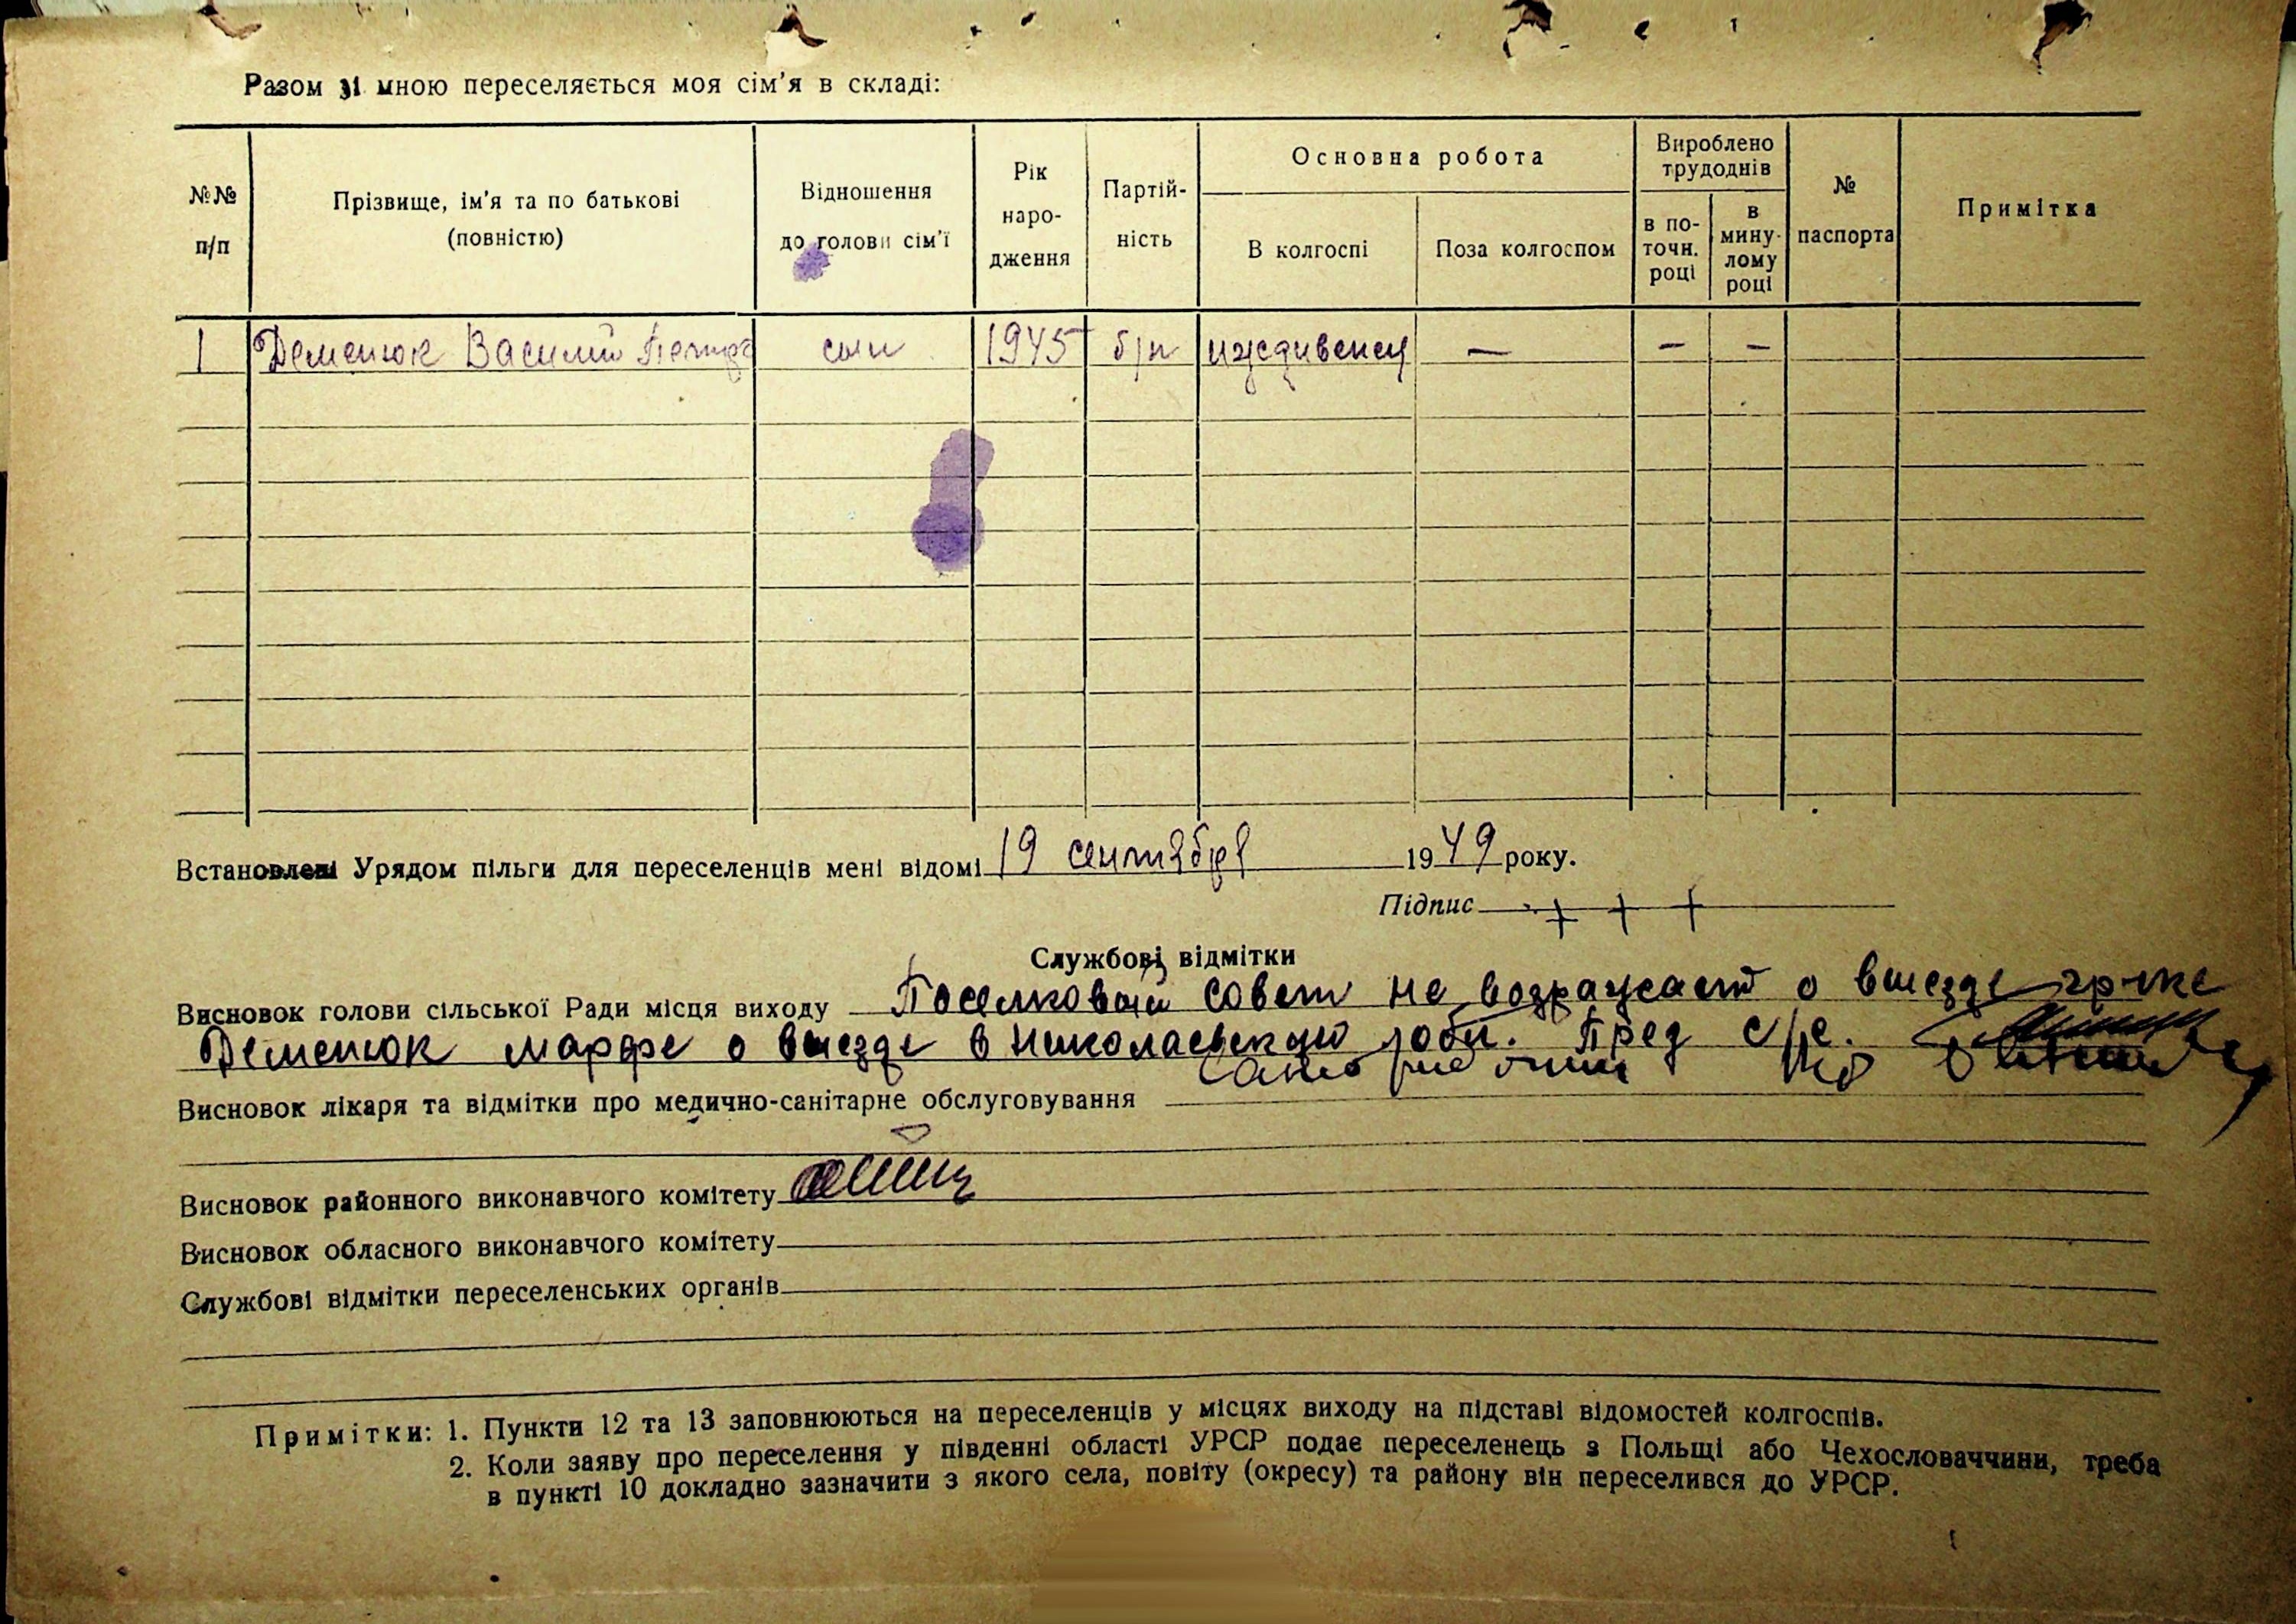 Разом зі мною переселяється моя сім'я в складі:
№№ п/п
Прізвище, ім'я та по батькові (повністю)
Відношення до голови сім'ї
Рік народження
Партійність
Основна робота
В колгоспі
Поза колгоспом
Вироблено трудоднів
в поточн. році
в минулому році
№ паспорта
Примітка
1 Деменюк Василий Петр сын 1945 б/п иждивенец — — —
Встановлені Урядом пільги для переселенців мені відомі 19 сентября 1949 року.
Підпис + + +
Службові відмітки
Висновок голови сільської Ради місця виходу Поселковый совет не возражает о выезде гр-ке
Деменюк Марфе о выезде в Николаевскую обл. Пред с/с.
Висновок лікаря та відмітки про медично-санітарне обслуговування
Висновок районного виконавчого комітету
Висновок обласного виконавчого комітету
Службові відмітки переселенських органів
Примітки: 1. Пункти 12 та 13 заповнюються на переселенців у місцях виходу на підставі відомостей колгоспів.
2. Коли заяву про переселення у південні області УРСР подає переселенець з Польщі або Чехословаччини, треба
в пункті 10 докладно зазначити з якого села, повіту (окресу) та району він переселився до УРСР.